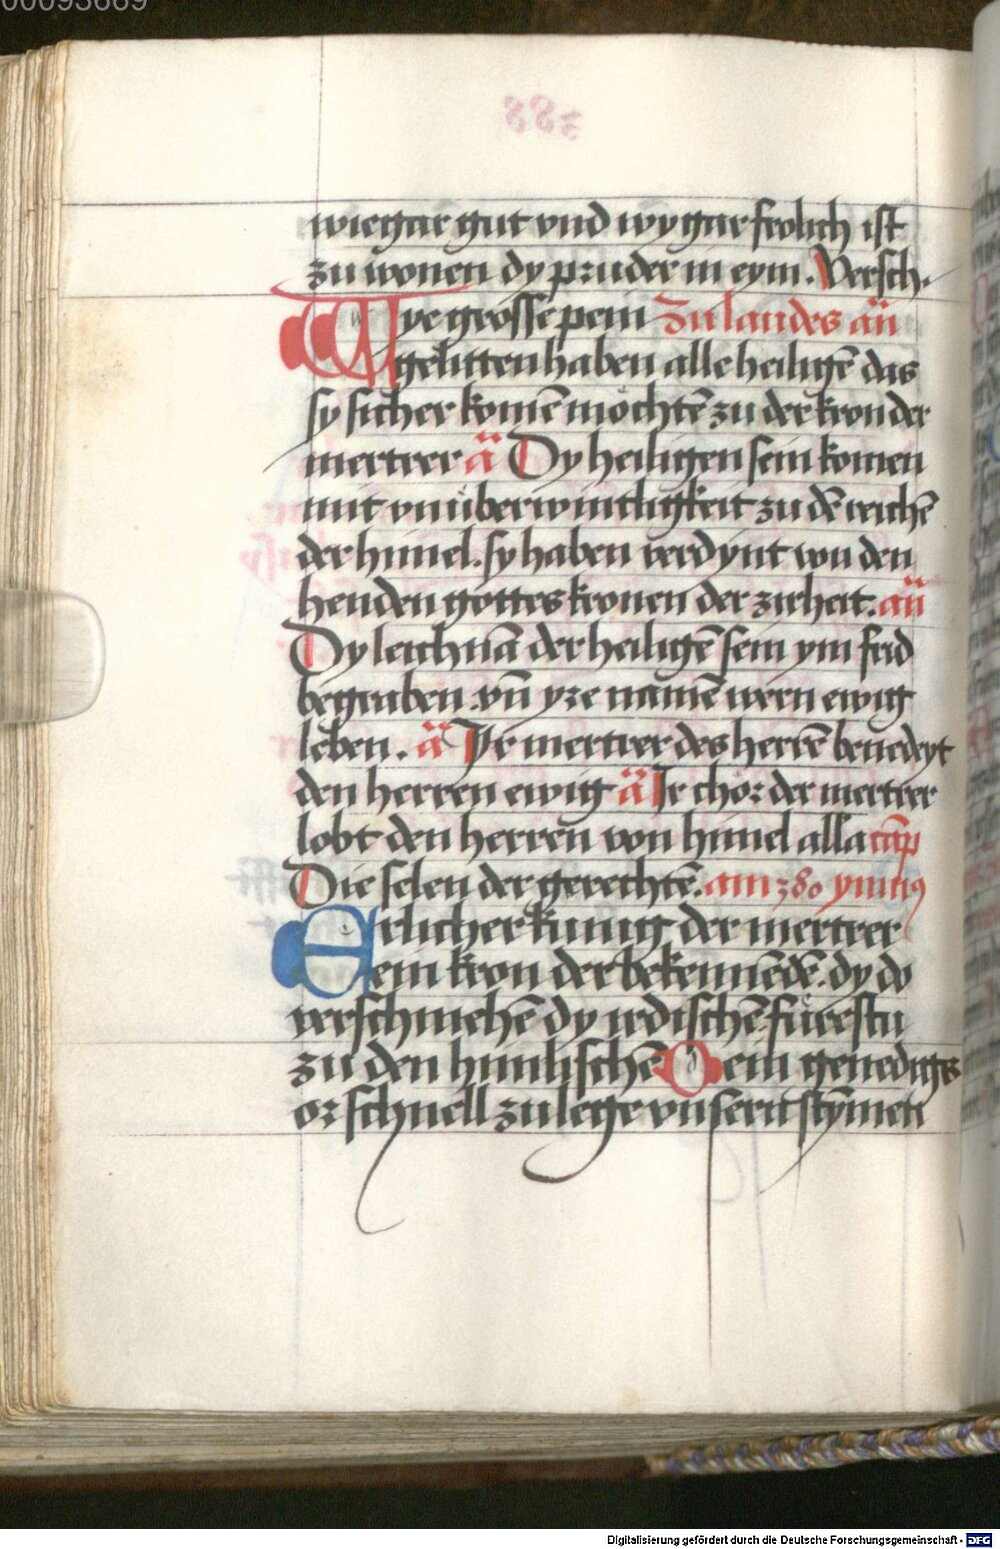 wie gar gut vnd wy gar frolich ist
zu wonen dy pruder in eym. Versch.
Wye grosse pein Zu laudes añ
gelitten haben alle heiligē das
sy sicher komē möchtē zu der kron der
mertrer ā Dy heiligen sein komen
mit vnüberwintligkeit zu dē reichē
der himel. sy haben verdynt von den
henden gottes kronen der zirheit. añ
Dy leichnā der heiligē sein ym frid
begraben. vn̄ yre namē wern ewig
leben. ā Ir mertrer des herrē benedeyt
den herren ewig ā Ir chör der mertrer
lobt den herren von himel alla cāp
Die selen der gerechtē. am 380 ymnus
Erlicher kunig der mertrer
ein kron der bekennēdē. dy do
verschmehē dy irdischē fürestu
zu den himlischē Dein genedigs
or schnell zu lege vnsern stymen